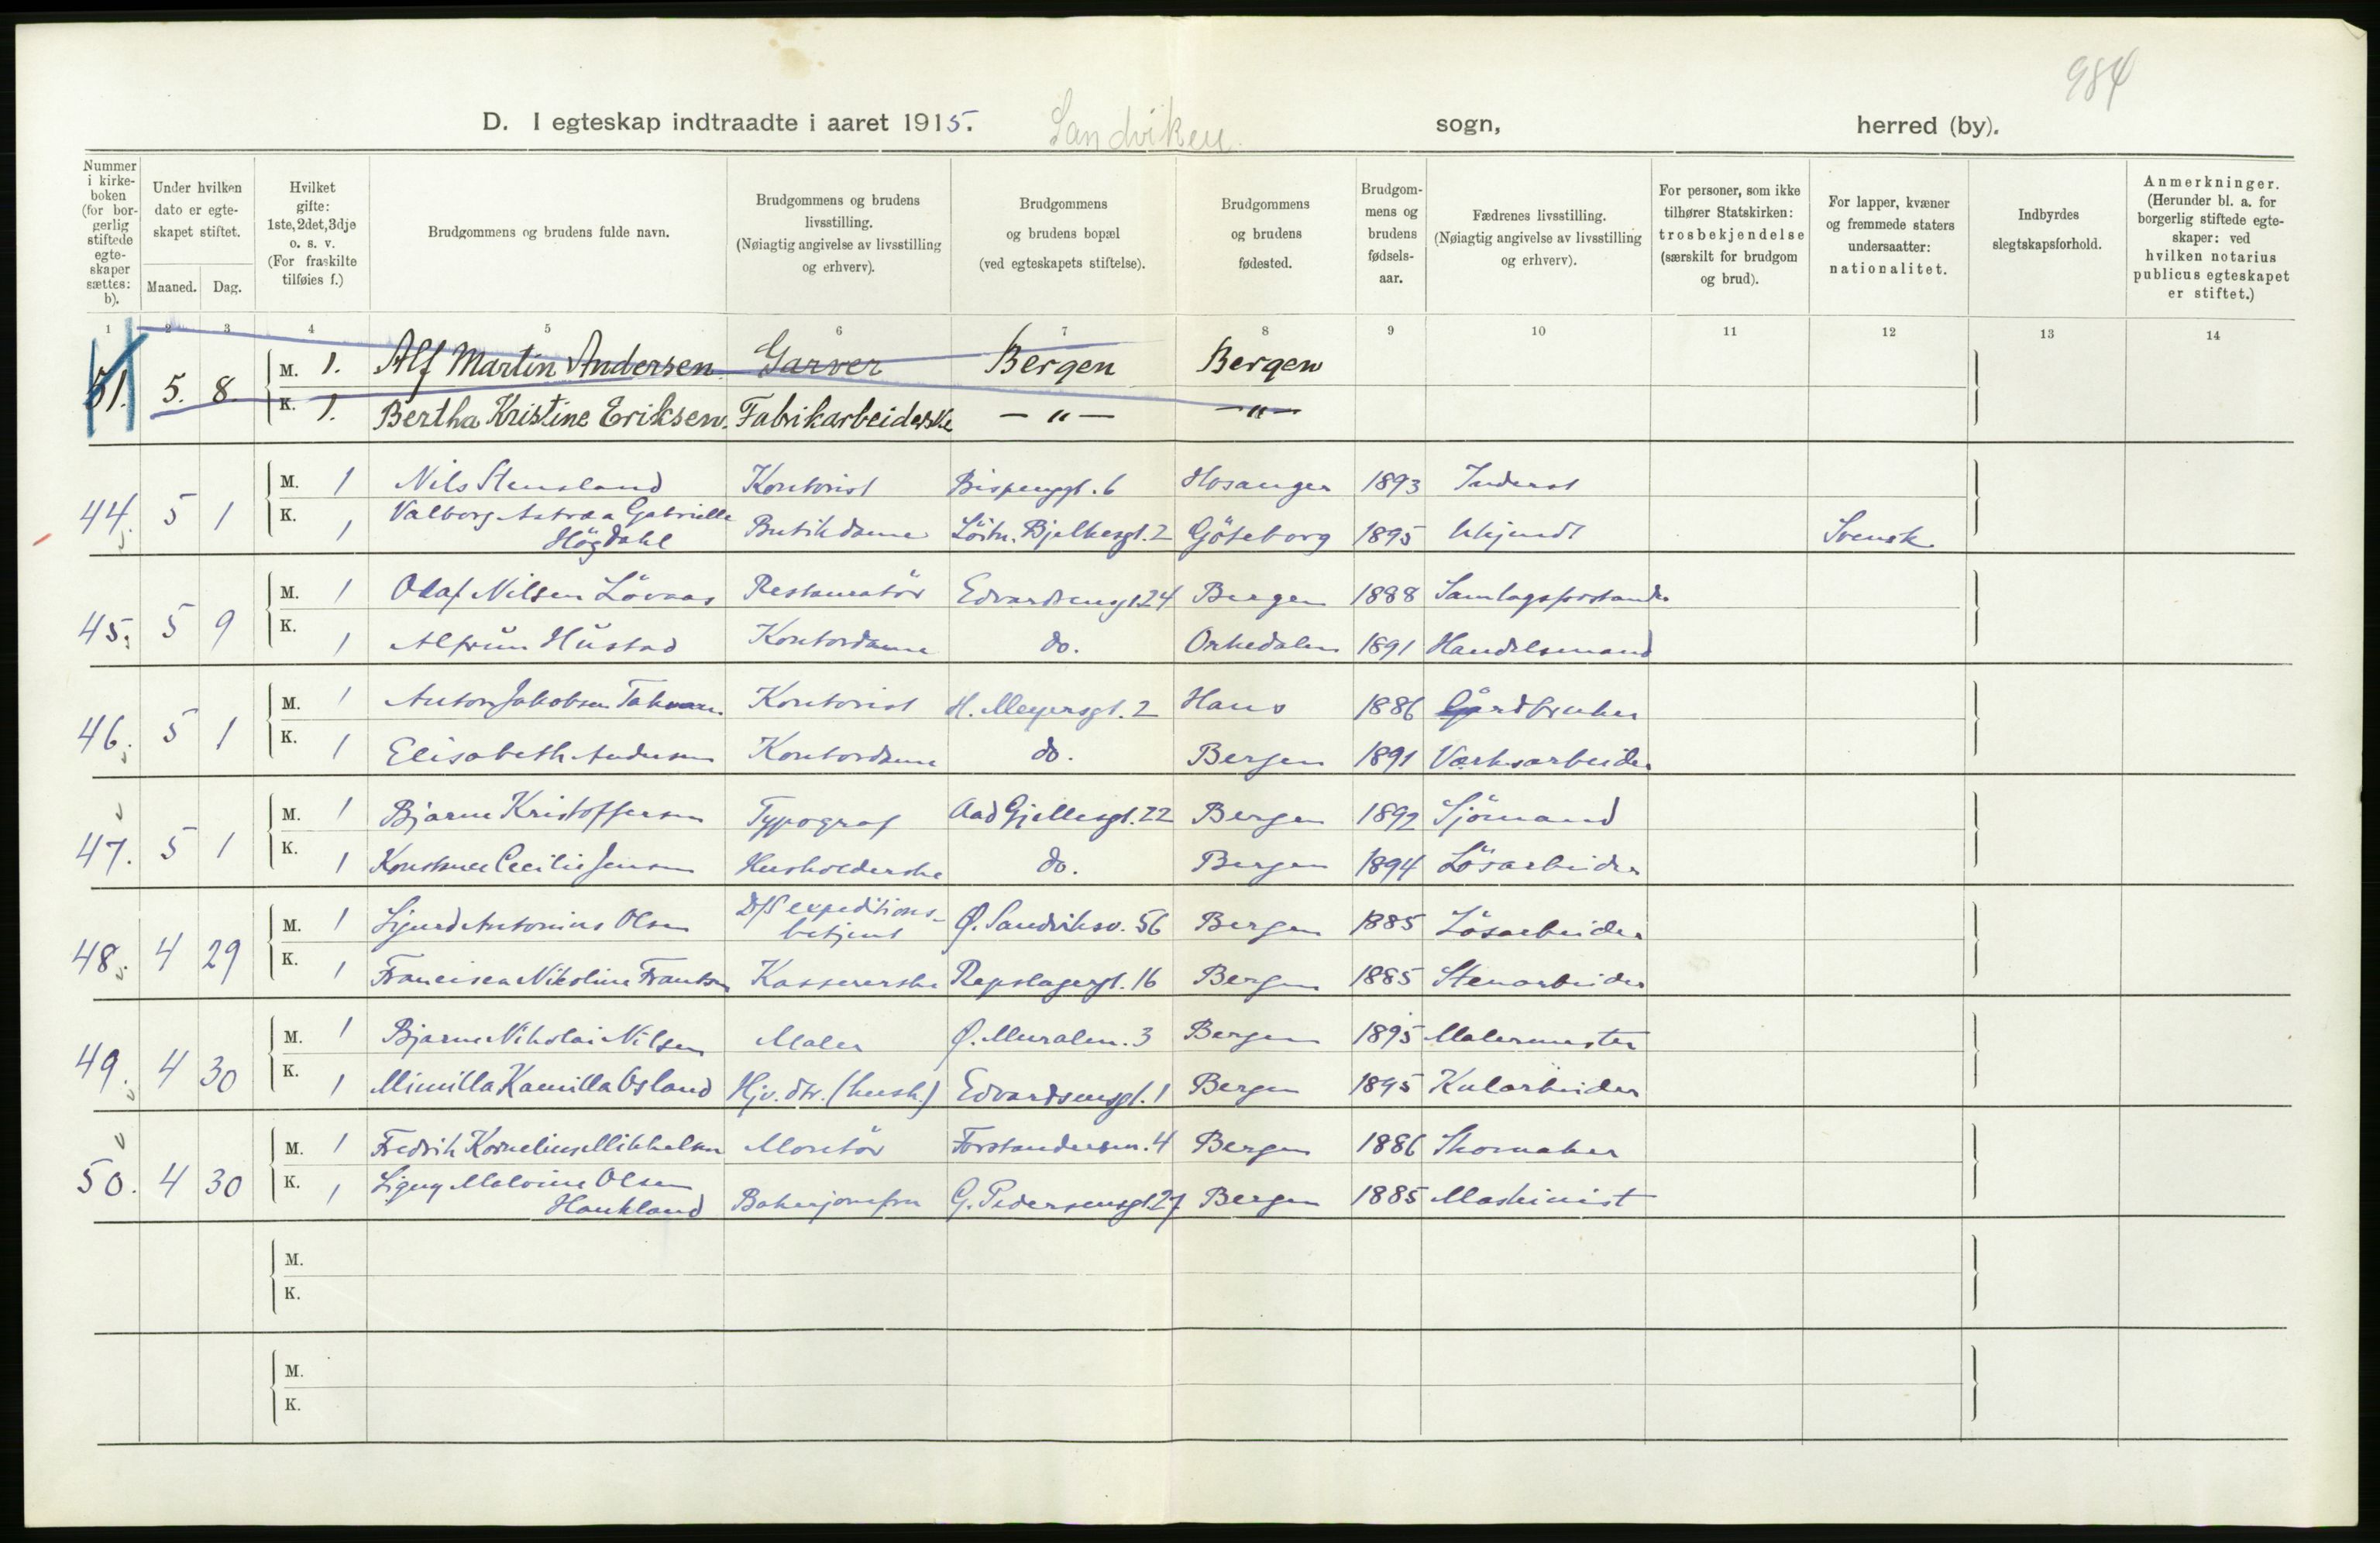 984
D. I egteskap indtraadte i aaret 1915. Sandviken sogn, herred (by).
Nummer i kirke-boken (for bor-gerlig stiftede egte-skaper sættes: b).
Under hvilken dato er egte-skapet stiftet.
Maaned. Dag.
Hvilket gifte: 1ste, 2det, 3dje o. s. v. (For fraskilte tilføies f.)
Brudgommens og brudens fulde navn.
Brudgommens og brudens livsstilling. (Nøiagtig angivelse av livsstilling og erhverv).
Brudgommens og brudens bopæl (ved egteskapets stiftelse).
Brudgommens og brudens fødested.
Brudgom-mens og brudens fødsels-aar.
Fædrenes livsstilling. (Nøiagtig angivelse av livsstilling og erhverv).
For personer, som ikke tilhører Statskirken: trosbekjendelse (særskilt for brudgom og brud).
For lapper, kvæner og fremmede staters undersaatter: nationalitet.
Indbyrdes slegtskapsforhold.
Anmerkninger. (Herunder bl. a. for borgerlig stiftede egte-skaper: ved hvilken notarius publicus egteskapet er stiftet.)
1 2 3 4 5 6 7 8 9 10 11 12 13 14
51. 5. 8. M. 1. Alf Martin Andersen Garver Bergen Bergen
K. 1. Bertha Kristine Eriksen Fabrikarbeiderske — " — — " —
44. 5 1 M. 1 Nils Stensland Kontorist Bispenggt. 6 Hosanger 1893 Inderst
K. 1 Valborg Astrea Gabrielle Högdahl Butikdame Löitn. Bjelkesgt. 2 Göteborg 1895 Ukjendt Svensk
45. 5 9 M. 1 Olaf Nilsen Lövaas Restauratör Edvardsensgt. 24 Bergen 1888 Samlagsforstander
K. 1 Alfrun Hustad Kontordame do. Orkedalen 1891 Handelsmand
46. 5 1 M. 1 Anton Jakobsen Kontorist H. Meyersgt. 2 Haus 1886 Gårdbruker
K. 1 Elisabeth Andersen Kontordame do. Bergen 1891 Værksarbeider
47. 5 1 M. 1 Bjarne Kristoffersen Typograf Aad Gjellesgt. 22 Bergen 1892 Sjömand
K. 1 Konstance Cecilie Jensen Husholderske do. Bergen 1894 Lösarbeider
48. 4 29 M. 1 Sigurd Antonius Olsen D/S expeditions-betjent Ø. Sandviksv. 56 Bergen 1885 Lösarbeider
K. 1 Francisca Nikoline Frantsen Kassererske Repslagergt. 16 Bergen 1885 Stenarbeider
49. 4 30 M. 1 Bjarne Nikolai Nilsen Maler Ø. Muralm. 3 Bergen 1895 Malermester
K. 1 Mimilla Kamilla Osland Hjv. dtr. (hush.) Edvardsensgt. 1 Bergen 1895 Kularbeider
50. 4 30 M. 1 Fredrik Kornelius Mikkelsen Montör Forstandersm. 4 Bergen 1886 Skomaker
K. 1 Signy Malvine Olsen Haukland Bakerjomfru G. Pedersensgt. 27 Bergen 1885 Maskinist
M.
K.
M.
K.